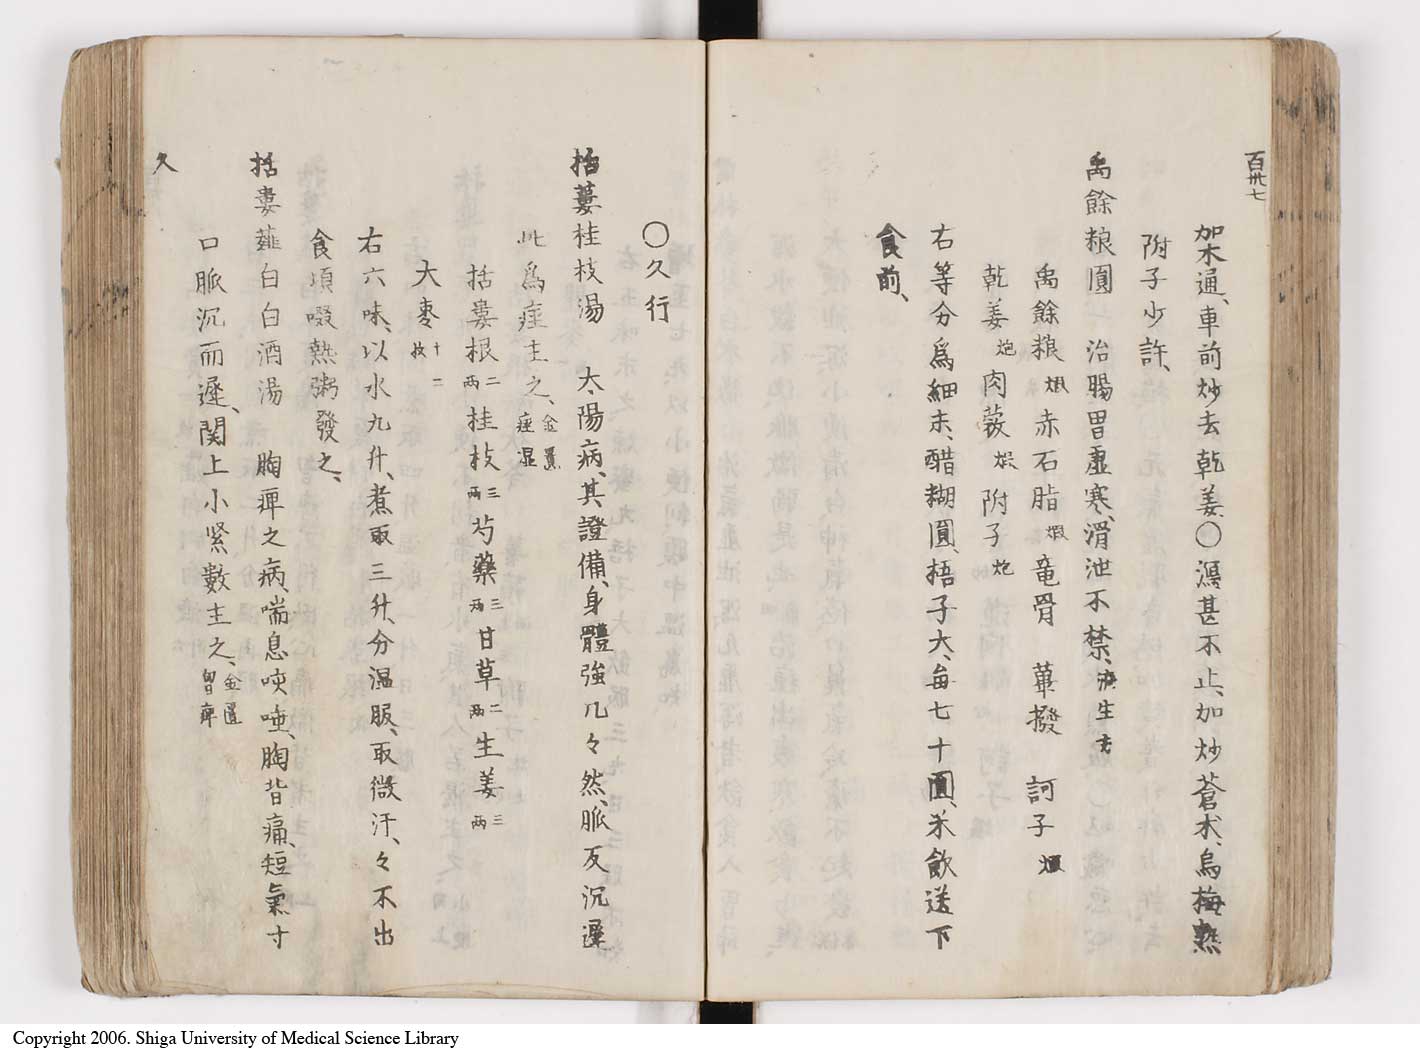 百卅七
加木通、車前炒去乾姜〇瀉甚不止、加炒蒼朮、烏梅、熟
附子少許、
禹餘粮圓　治腸胃虚寒、滑泄不禁、
禹餘粮煅赤石脂煅竜骨　蓽撥　訶子煨
乾姜炮肉蔲煨附子炮
右等分為細末、醋糊圓、梧子大、每七十圓、米飲送下
食前、
〇久行
括蔞桂枝湯　太陽病、其證備、身體強几々然、脈反沉遲
此為痓主之、金匱痓湿
括蔞根二両桂枝三両芍藥三両甘草二両生姜三両
大棗十二枚
右六味、以水九升、煮取三升、分温服、取微汗、々不出
食頃啜熱粥發之、
括蔞薤白白酒湯　胸痺之病、喘息咳唾、胸背痛、短氣、寸
口脈沉而遲、関上小緊數主之、金匱胸痺
久
Copyright 2006. Shiga University of Medical Science Library